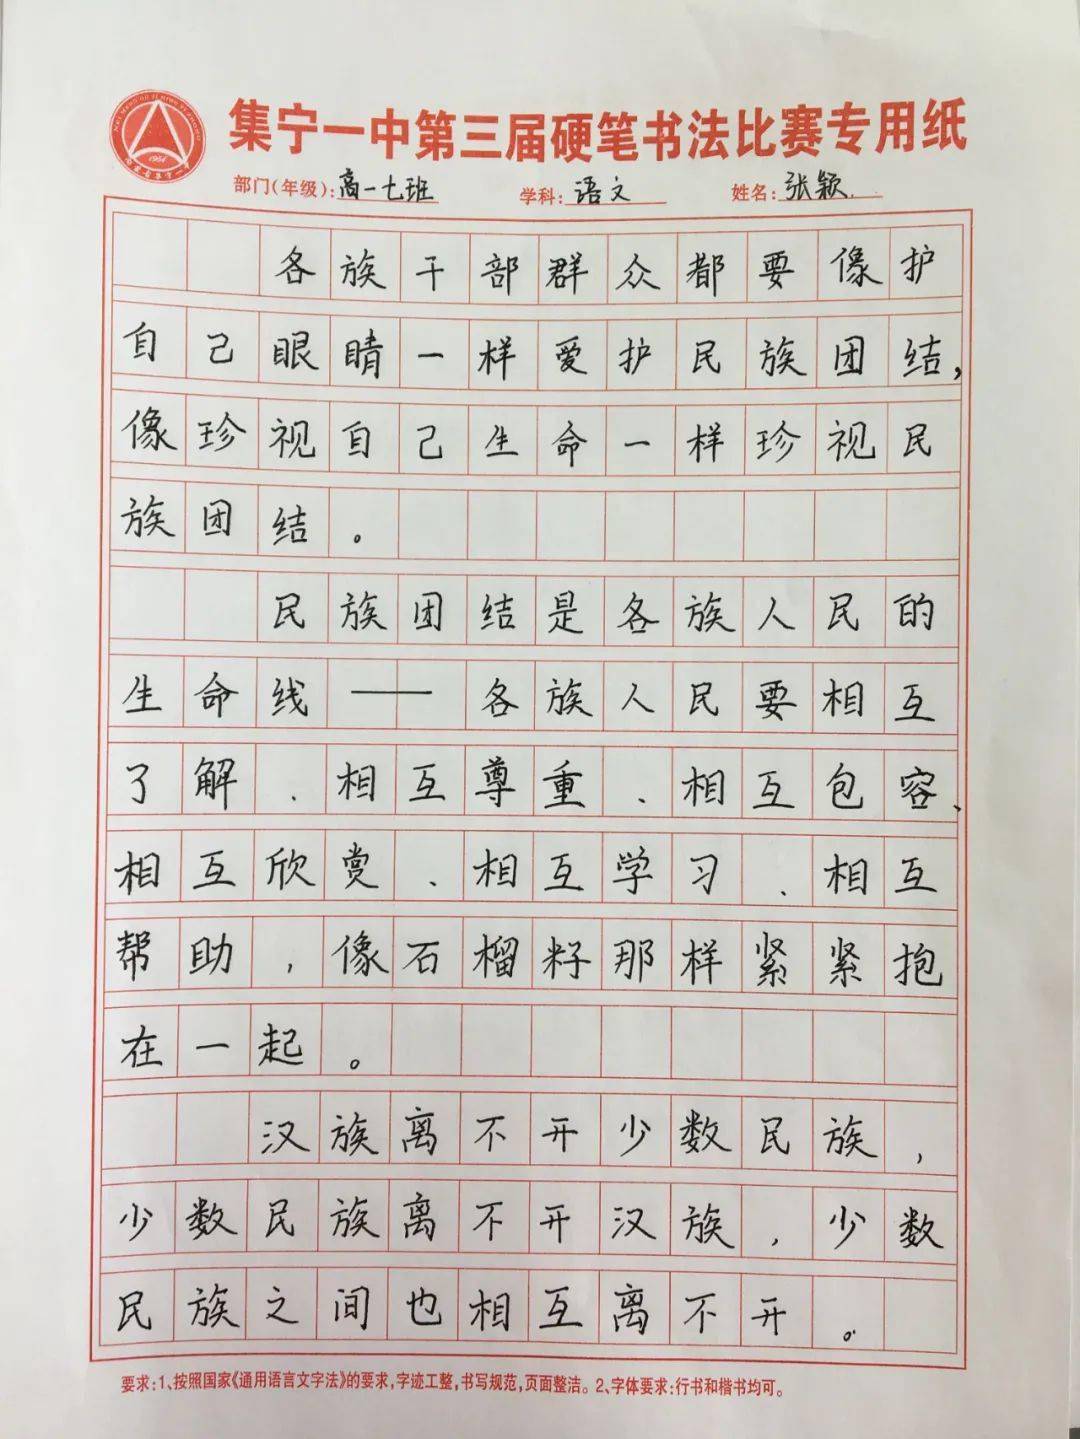 集宁一中第三届硬笔书法比赛专用纸
部门(年级):高一七班 学科:语文 姓名:张颖
1954
各族干部群众都要像护
自己眼睛一样爱护民族团结,
像珍视自己生命一样珍视民
族团结。
民族团结是各族人民的
生命线——各族人民要相互
了解、相互尊重、相互包容、
相互欣赏、相互学习、相互
帮助,像石榴籽那样紧紧抱
在一起。
汉族离不开少数民族,
少数民族离不开汉族,少数
民族之间也相互离不开。
要求:1、按照国家《通用语言文字法》的要求,字迹工整,书写规范,页面整洁。2、字体要求:行书和楷书均可。